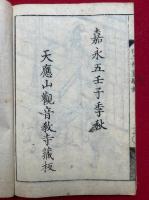 嘉永五壬子季秋
天應山觀音教寺藏板